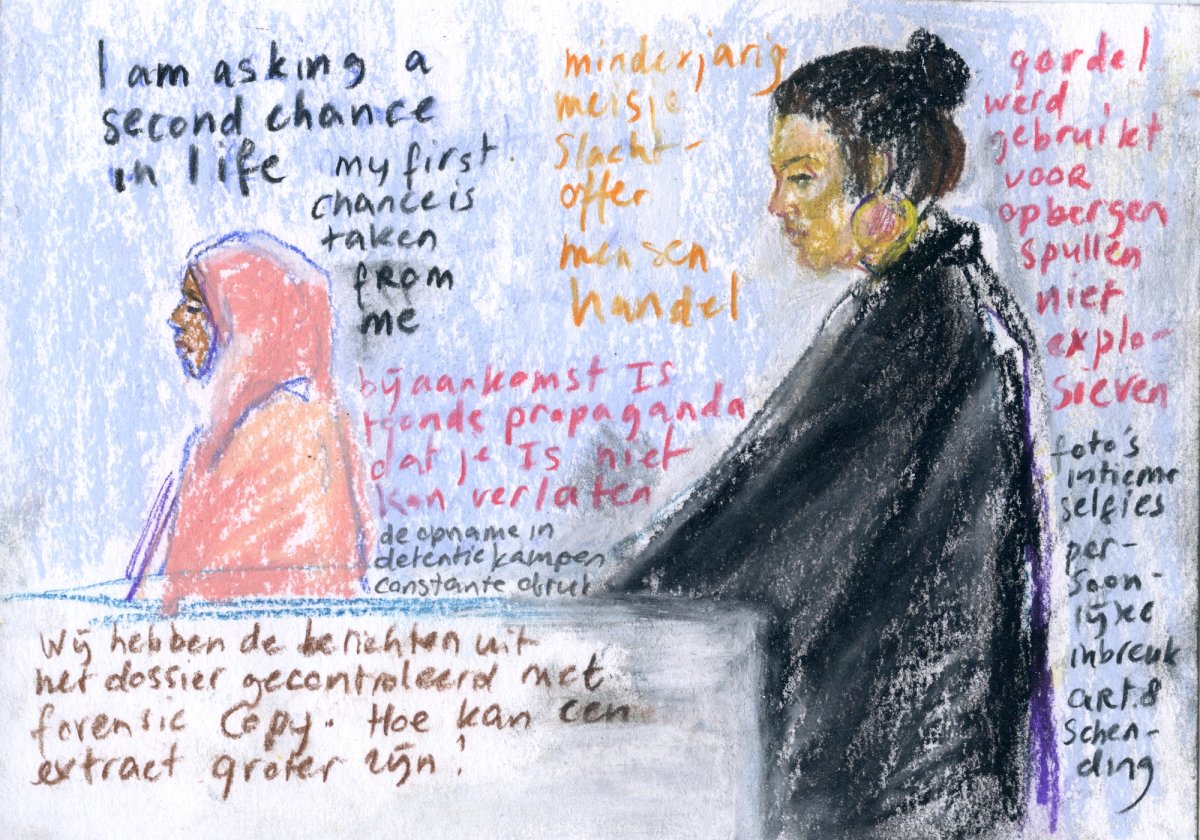 I am asking a
second chance
in life
my first
chance is
taken
from
me
minderjarig
meisje
Slacht-
offer
mensen
handel
gordel
werd
gebruikt
voor
opbergen
spullen
niet
explo-
sieven
bij aankomst IS
toonde propaganda
dat je IS niet
kan verlaten
de opname in
detentiekampen
constante
foto's
intieme
selfies
per-
soon-
lijke
inbreuk
art. 8
schen-
ding
Wij hebben de berichten uit
het dossier gecontroleerd met
forensic Copy. Hoe kan een
extract groter zijn?